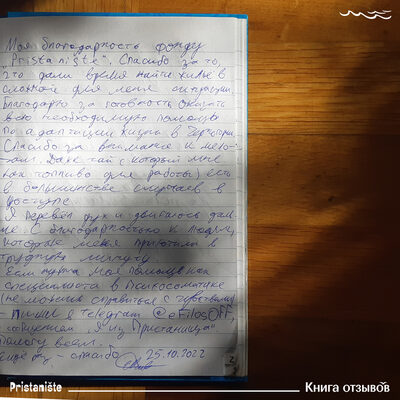 Моя благодарность фонду
"Pristanište". Спасибо за то,
что дали время найти жильё в
сложной для меня ситуации.
Благодарю за готовность оказать
всю необходимую помощь
по адаптации жизни в Черногории.
Спасибо за внимание к мело-
чам. Даже чай (который мне
как топливо для работы) есть
в большинстве случаев в
доступе.
Я перевёл дух и двигаюсь даль-
ше. С благодарностью к людям,
которые меня приютили в
трудную минуту.
Если нужна моя помощь как
специалиста в Психосоматике
(не можете справиться с чувствами)
- пишите в Telegram @eFilosOFF,
с "Я из Пристанища"
помогу всем.
Ещё раз - спасибо 25.10.2022
Pristanište
Книга отзывов